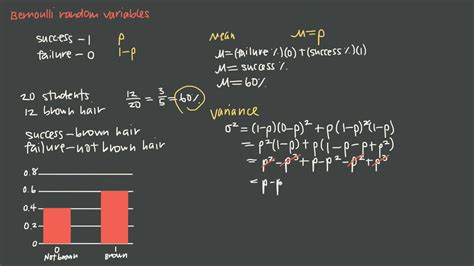 Bernoulli random variables
success-1 p
failure-0 1-p
20 students
12 brown hair
12/20 = 3/5 = 60%
success-brown hair
failure-not brown hair
0.8
0.6
0.4
0.2
0
0 1
Not brown Brown
Mean μ=p
μ=(failure%)(0)+(success%)(1)
μ=success%
μ=60%
variance
σ²=(1-p)(0-p)²+p(1-p)²(1-p)
=p²(1-p)+p(1-p-p+p²)
=p²-p³+p-p²-p²+p³
=p-p